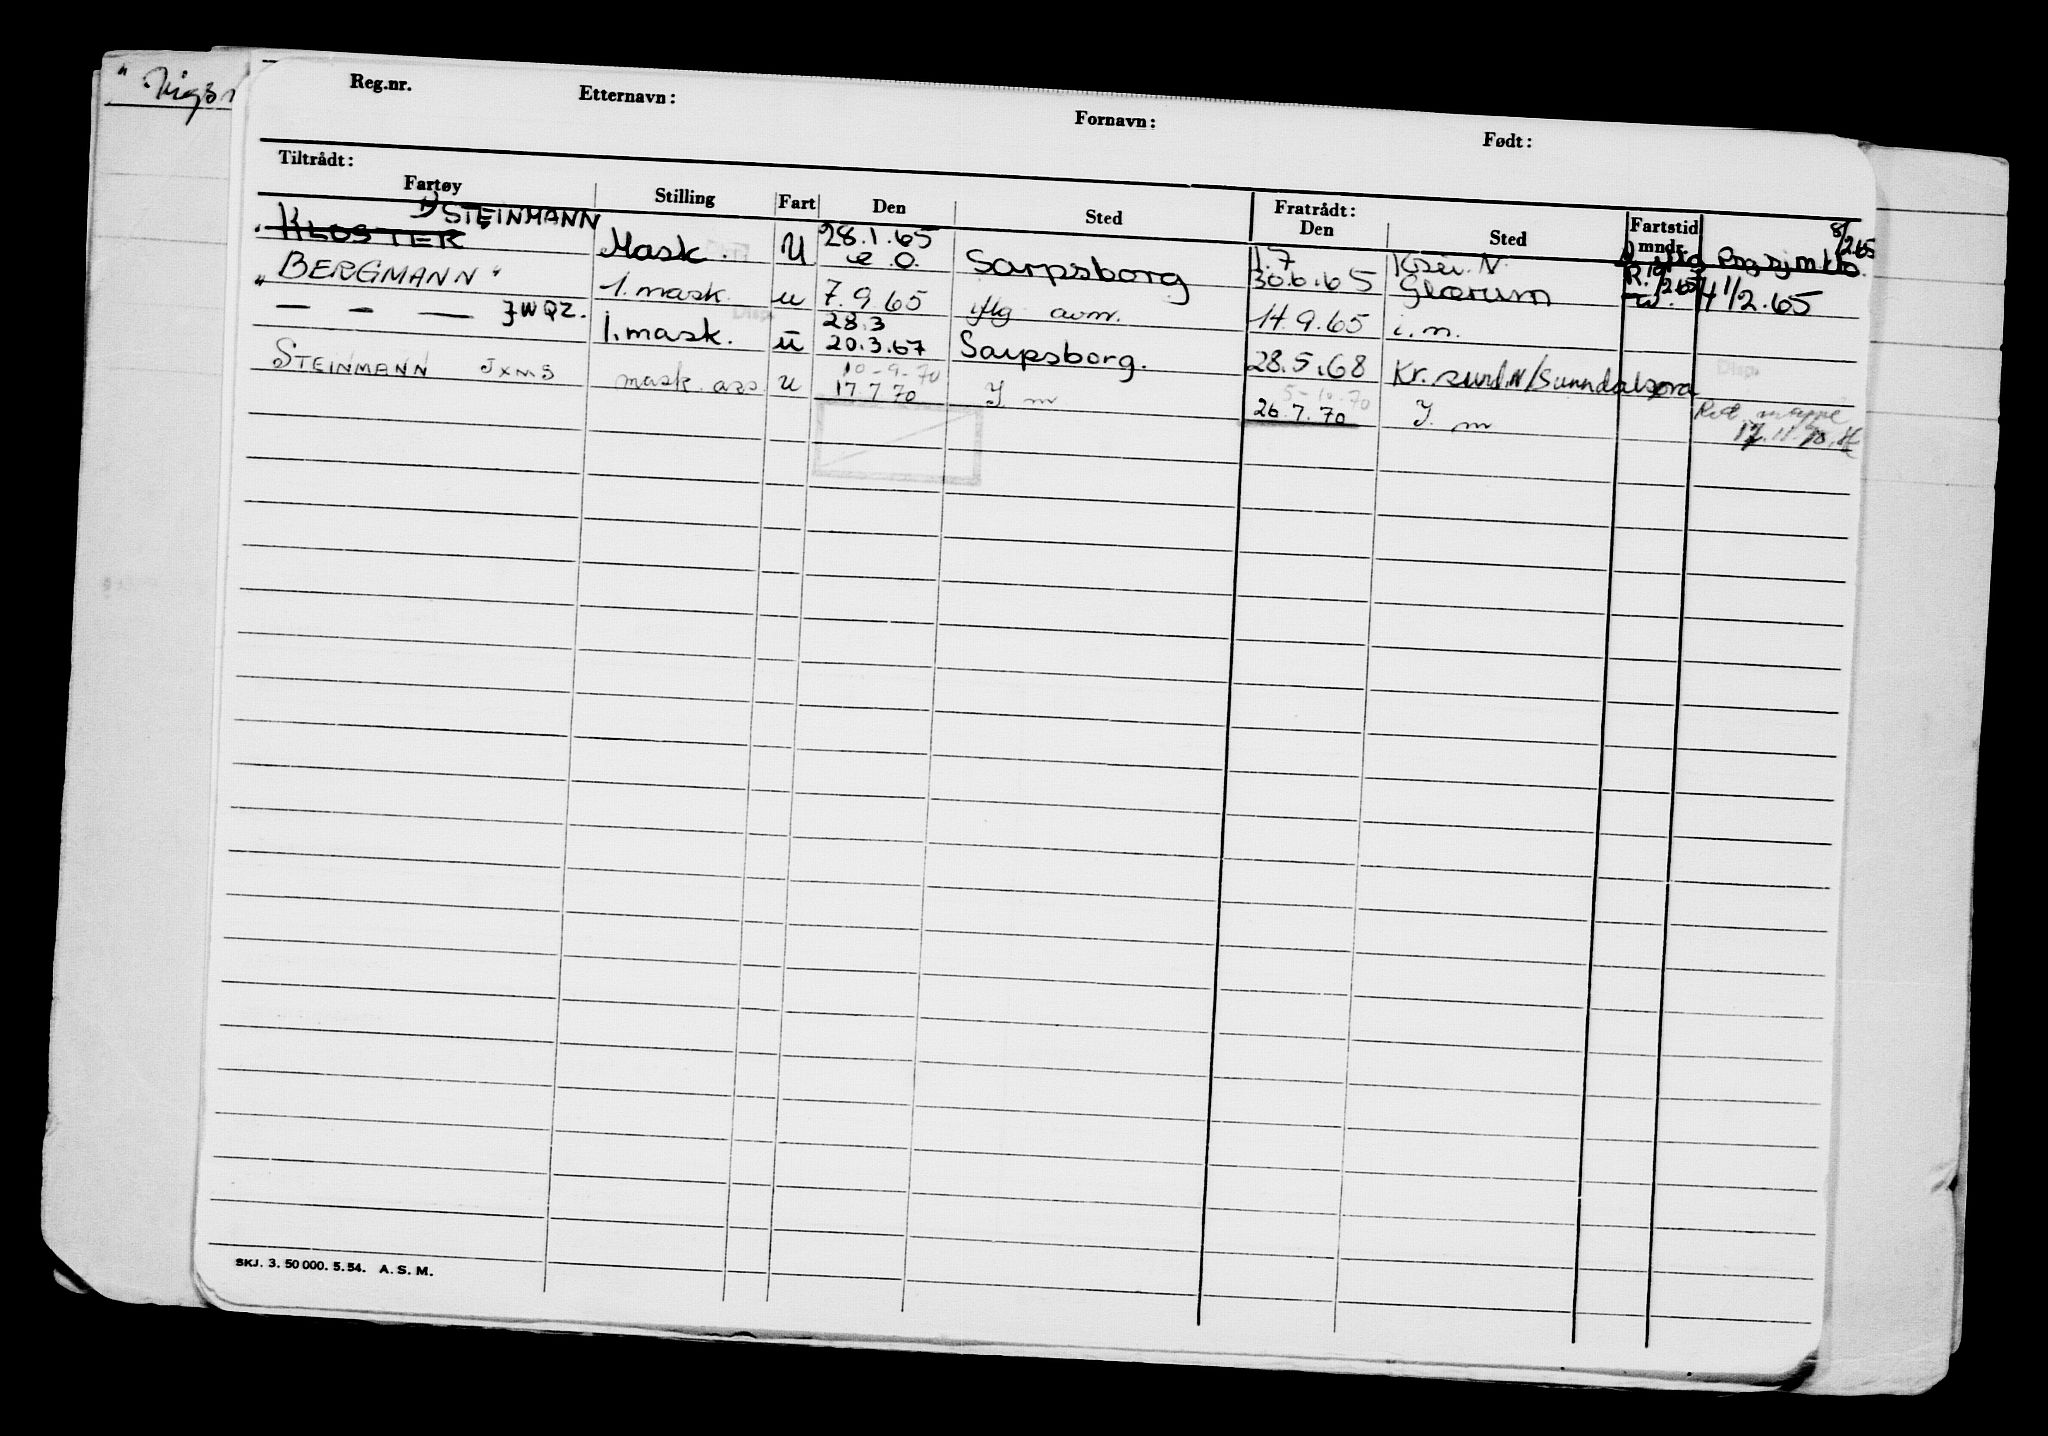 Reg.nr. Etternavn: Fornavn: Født:
Tiltrådt: Fratrådt:
Fartøy Stilling Fart Den Sted Den Sted Fartstid mndr.
1) STEINMANN
KLOSTER Mask. U 28.1.65 Sarpsborg 1.7 30.6.65 Glærum 8/2.65
"BERGMANN" 1. mask. u 7.9.65 iflg avm. 14.9.65 i.m. 4 1/2.65
— — — }WQZ. 1. mask. u 28.3 20.3.67 Sarpsborg. 28.5.68 Kr.sund.N/Sunndalsøra
STEINMANN JXMS mask. ass u 10-9-70 17.7.70 I m 5-10.70 26.7.70 I. m
17.11.70
SKJ. 3. 50 000. 5. 54. A. S. M.